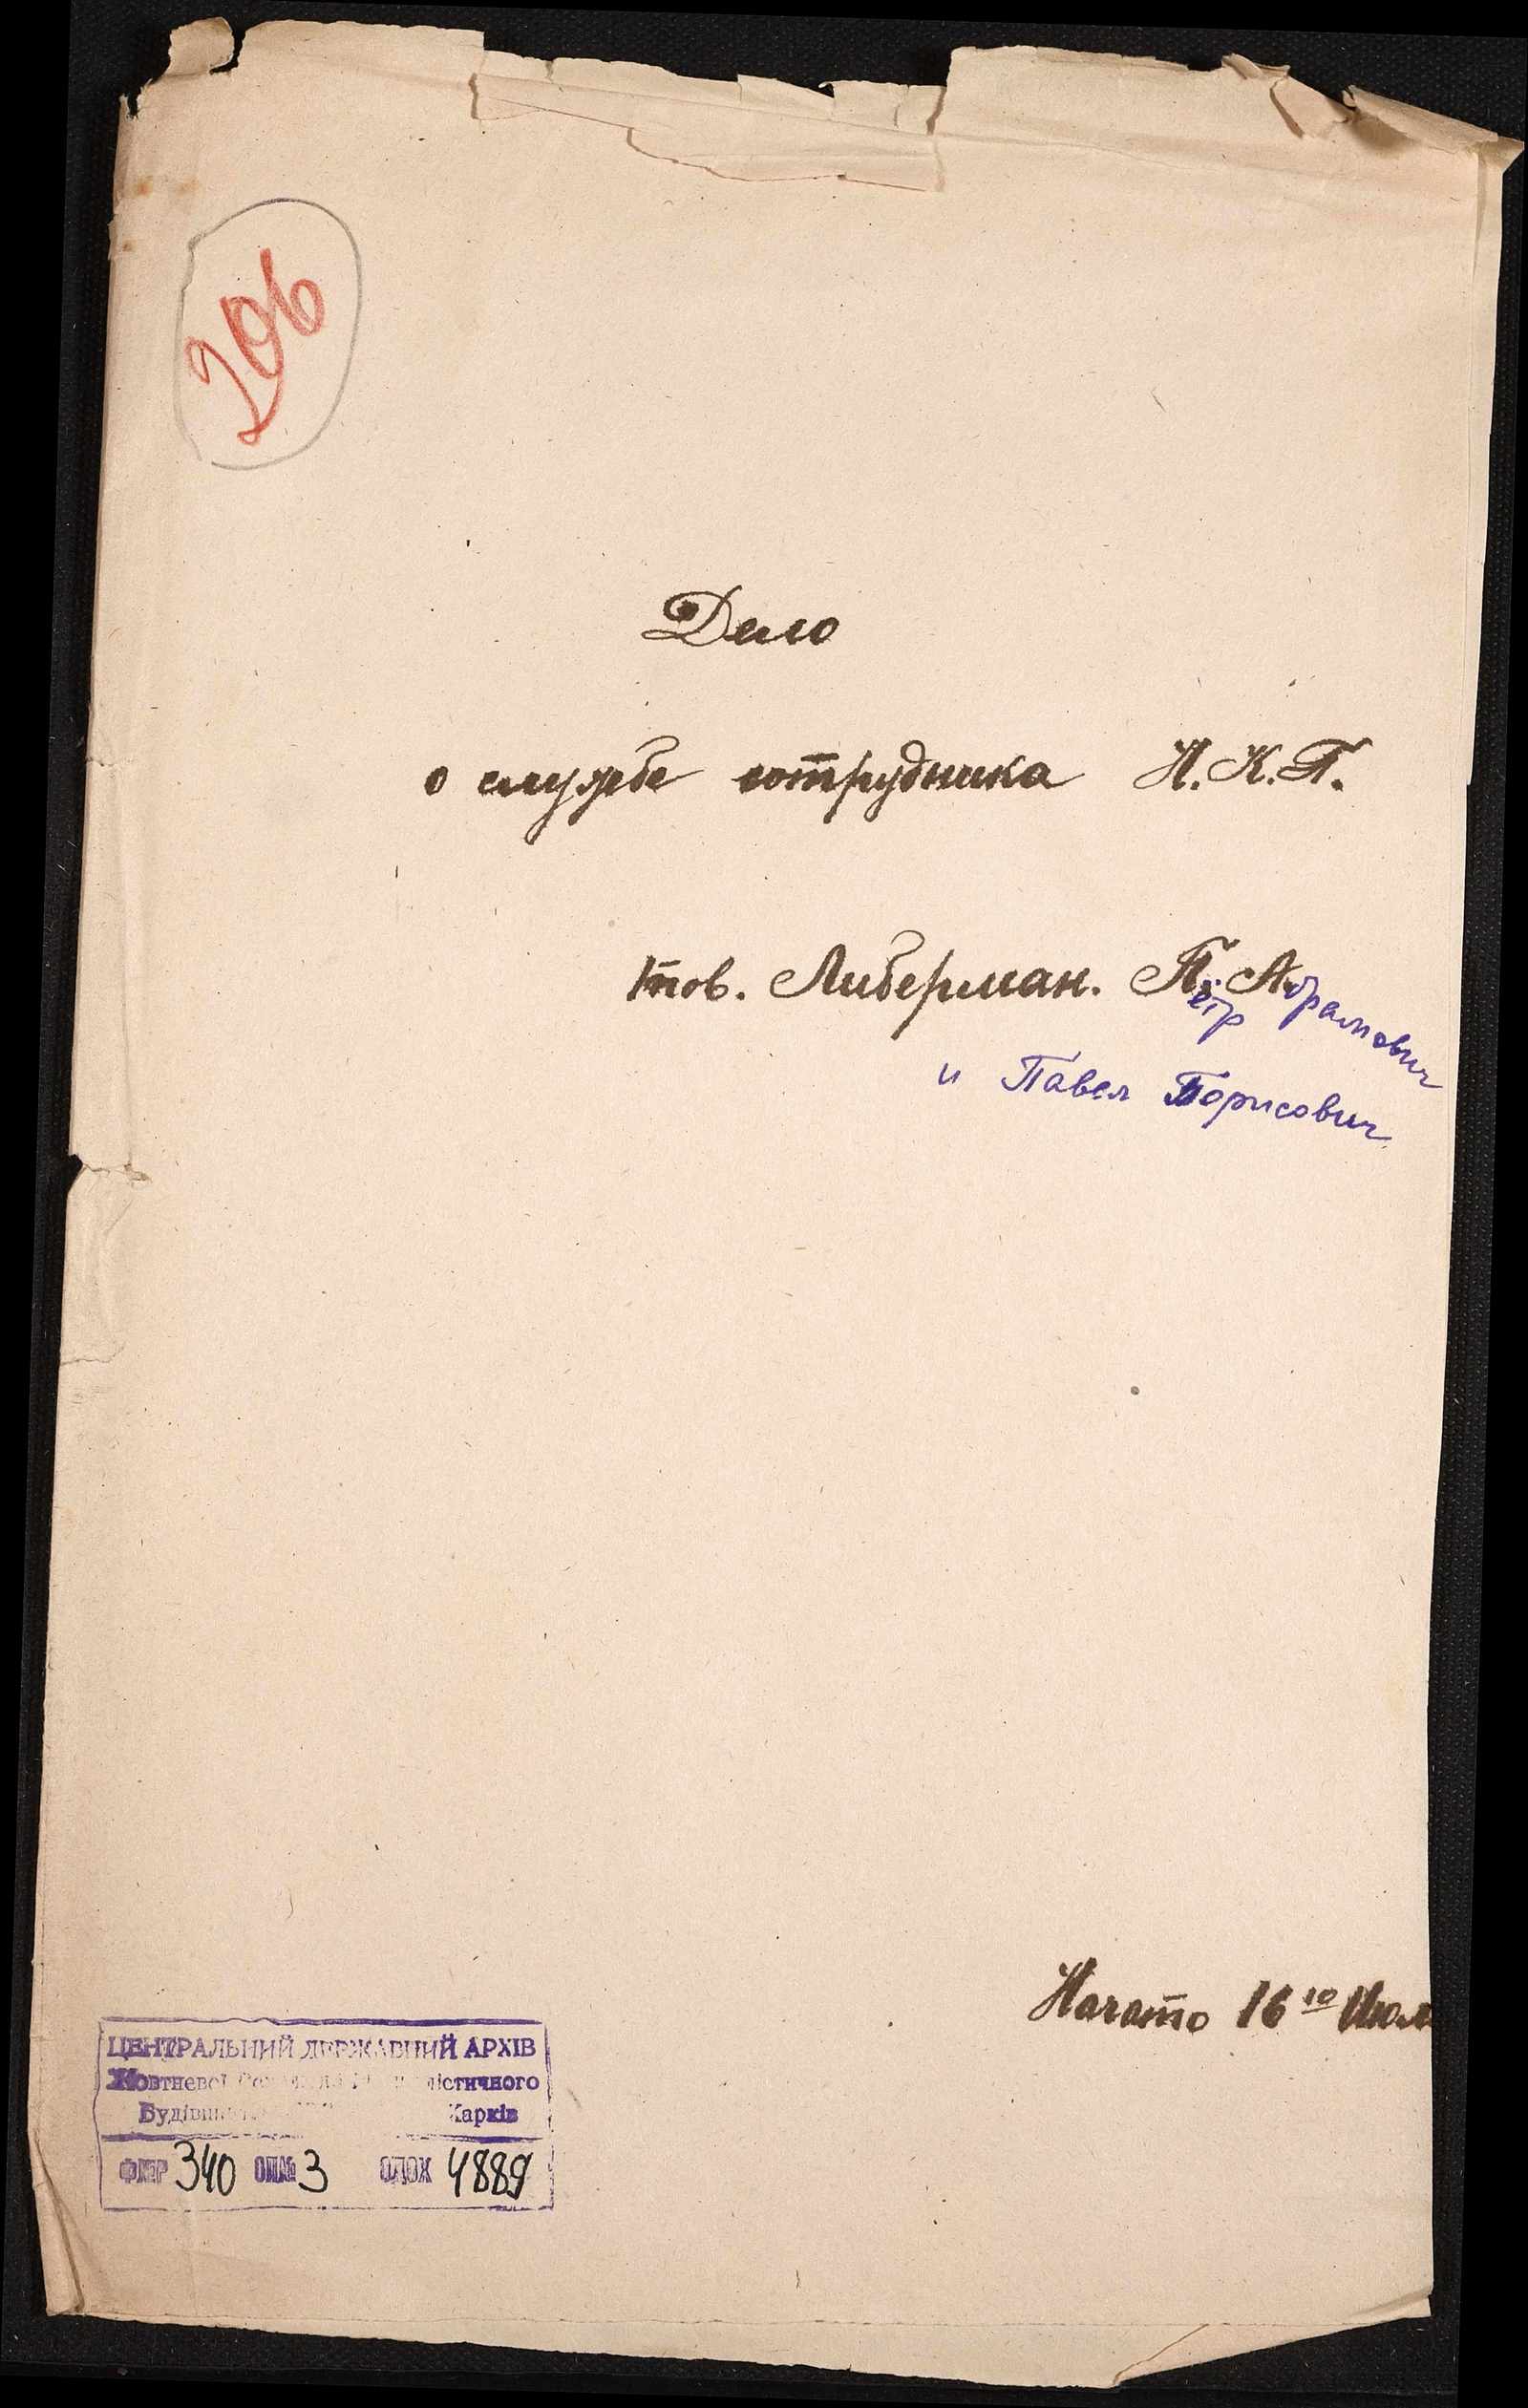 206
Дело
о службе сотрудника Н.К.П.
тов. Либерман. Пётр Абрамович
и Павел Борисович
Начато 16го Июл
ЦЕНТРАЛЬНИЙ ДЕРЖАВНИЙ АРХІВ
Жовтневої
Харків
Ф№Р 340 ОП№ 3 ОД.ЗХ 4889